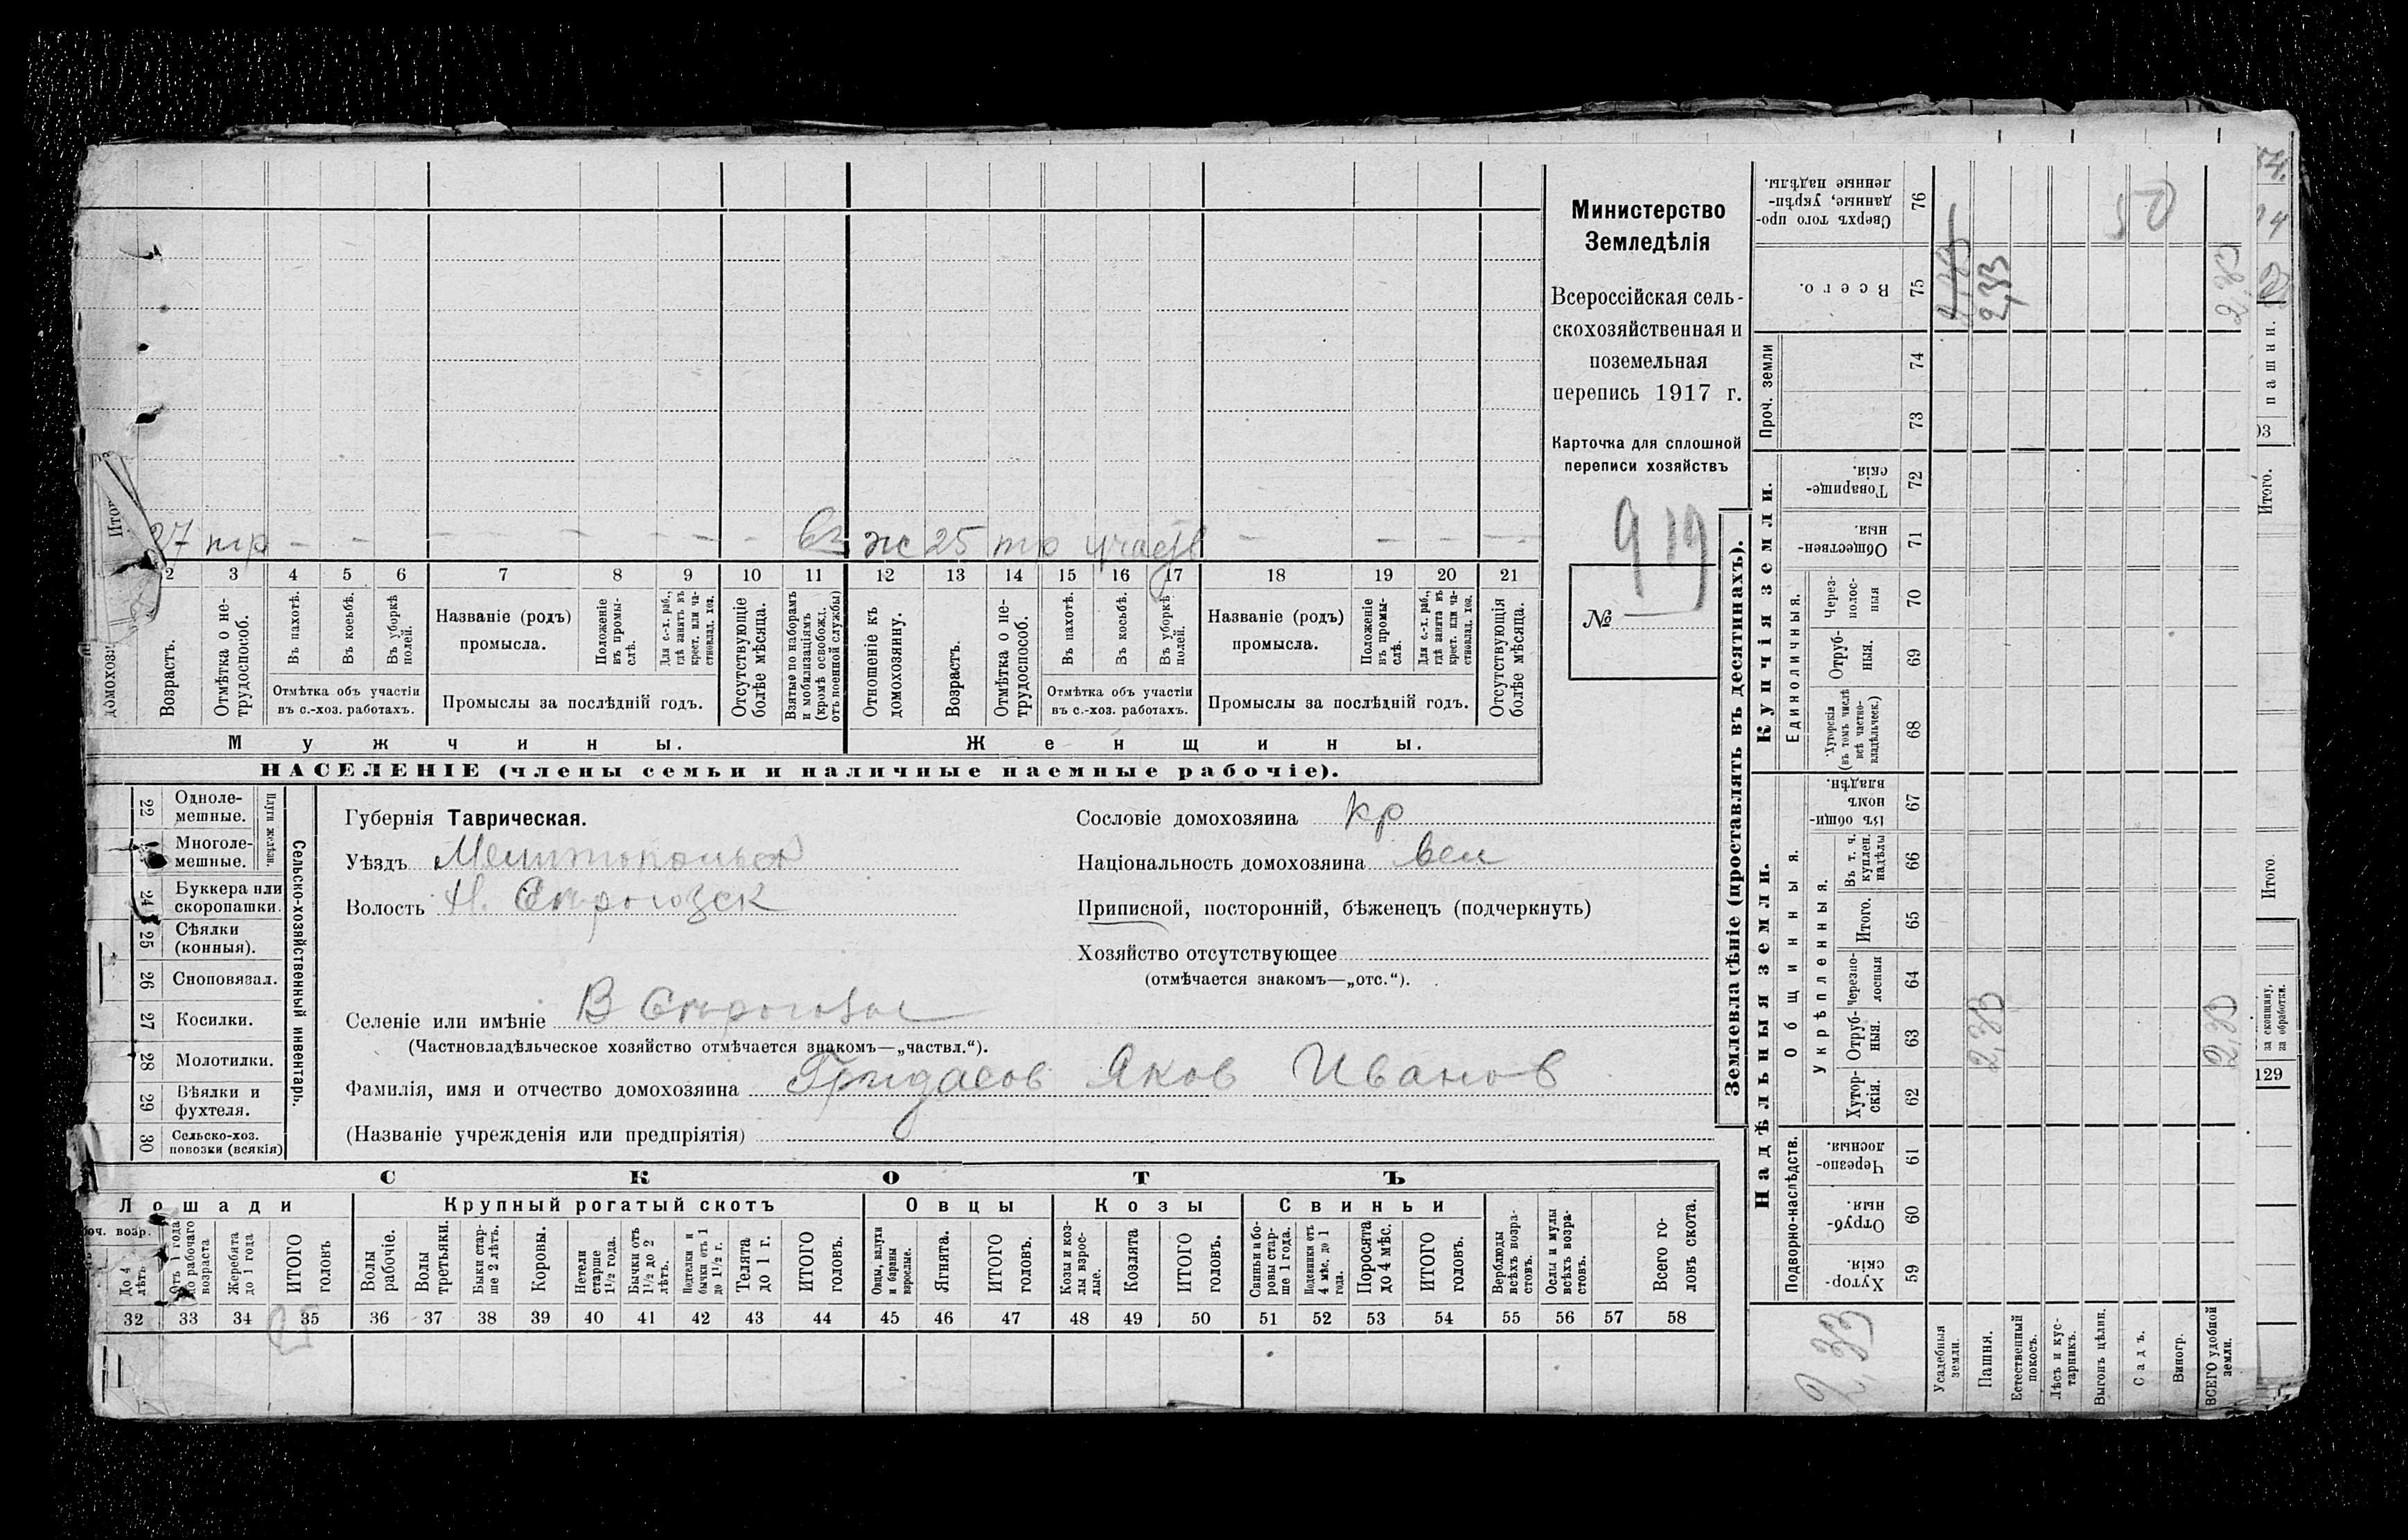 Министерство
Земледѣлія
Всероссійская сель-
скохозяйственная и
поземельная
перепись 1917 г.
Карточка для сплошной
переписи хозяйствъ
919
№
27 тр — — — — — — — вз ж 25 тр участв — — — —
2 3 4 5 6 7 8 9 10 11 12 13 14 15 16 17 18 19 20 21
домохоз
Возрастъ.
Отмѣтка о не-
трудоспособ.
Въ пахотѣ.
Въ косьбѣ.
Въ уборкѣ
полей.
Отмѣтка объ участіи
въ с.-хоз. работахъ.
Названіе (родъ)
промысла.
Положеніе
въ промы-
слѣ.
Для с.-х. раб.,
гдѣ занятъ въ
крест. или ча-
стновлад. хоз.
Промыслы за послѣдній годъ.
Отсутствующіе
болѣе мѣсяца.
Взятые по наборамъ
и мобилизаціямъ
(кромѣ освобожд.
отъ военной службы)
Отношеніе къ
домохозяину.
Возрастъ.
Отмѣтка о не-
трудоспособ.
Въ пахотѣ.
Въ косьбѣ.
Въ уборкѣ
полей.
Отмѣтка объ участіи
въ с.-хоз. работахъ.
Названіе (родъ)
промысла.
Положеніе
въ промы-
слѣ.
Для с.-х. раб.,
гдѣ занята въ
крест. или ча-
стновлад. хоз.
Промыслы за послѣдній годъ.
Отсутствующія
болѣе мѣсяца.
Мужчины.
Женщины.
НАСЕЛЕНІЕ (члены семьи и наличные наемные рабочіе).
22 Одноле-
мешные.
Многоле-
мешные.
Плуги желѣзн.
24 Буккера или
скоропашки.
25 Сѣялки
(конныя).
26 Сноповязал.
27 Косилки.
28 Молотилки.
29 Вѣялки и
фухтеля.
30 Сельско-хоз.
повозки (всякія)
Сельско-хозяйственный инвентарь.
Губернія Таврическая.
Уѣздъ Мелитопольск
Волость Н. Серогозск
Селеніе или имѣніе В Серогозы
(Частновладѣльческое хозяйство отмѣчается знакомъ—„частвл.“).
Фамилія, имя и отчество домохозяина Гридасов Яков Иванов
(Названіе учрежденія или предпріятія)
Сословіе домохозяина кр
Національность домохозяина вел
Приписной, посторонній, бѣженецъ (подчеркнуть)
Хозяйство отсутствующее
(отмѣчается знакомъ—„отс.“).
СКОТЪ
Лошади
Крупный рогатый скотъ
Овцы
Козы
Свиньи
До 4
лѣтъ
Отъ 1 года
до рабочаго
возраста
Жеребята
до 1 года
ИТОГО
головъ
Волы
рабочіе.
Волы
третьяки.
Быки стар-
ше 2 лѣтъ.
Коровы.
Нетели
старше
1½ года.
Бычки отъ
1½ до 2
лѣтъ.
Подтелки и
бычки отъ 1
до 1½ г.
Телята
до 1 г.
ИТОГО
головъ.
Овцы, валухи
и бараны
взрослые.
Ягнята.
ИТОГО
головъ.
Козы и коз-
лы взрос-
лые.
Козлята
ИТОГО
головъ.
Свиньи и бо-
ровы стар-
ше 1 года.
Подсвинки отъ
4 мѣс. до 1
года.
Поросята
до 4 мѣс.
ИТОГО
головъ.
Верблюды
всѣхъ возра-
стовъ.
Ослы и мулы
всѣхъ возра-
стовъ.
Всего го-
ловъ скота.
32 33 34 35 36 37 38 39 40 41 42 43 44 45 46 47 48 49 50 51 52 53 54 55 56 57 58
Землевладѣніе (проставлять въ десятинахъ).
Надѣльныя земли.
Купчія земли.
Проч. земли
Подворно-наслѣдств.
Общинныя.
Укрѣпленныя.
Единоличныя.
Хутор-
скія. 59
Отруб-
ныя. 60
Черезпо-
лосныя. 61
Хутор-
скія. 62
Отруб-
ныя. 63
Черезпо-
лосныя 64
Итого. 65
Въ т. ч.
куплен.
надѣлы 66
Въ общи-
номъ
владѣн. 67
Хуторскія
(въ томъ числѣ
всѣ частно-
владѣльческ.) 68
Отруб-
ныя. 69
Через-
полос-
ныя 70
Обществен-
ныя. 71
Товарище-
скія. 72
73
74
Всего. 75
Сверхъ того про-
данные, укрѣп-
ленные надѣлы. 76
Усадебныя
земли.
Пашня.
Естественный
покосъ.
Лѣсъ и кус-
тарникъ.
Выгонъ цѣлин.
Садъ.
Виногр.
ВСЕГО удобной
земли.
2,33
2,33
50
пашни.
Итого.
Итого.
за скопщину,
за обработки.
129